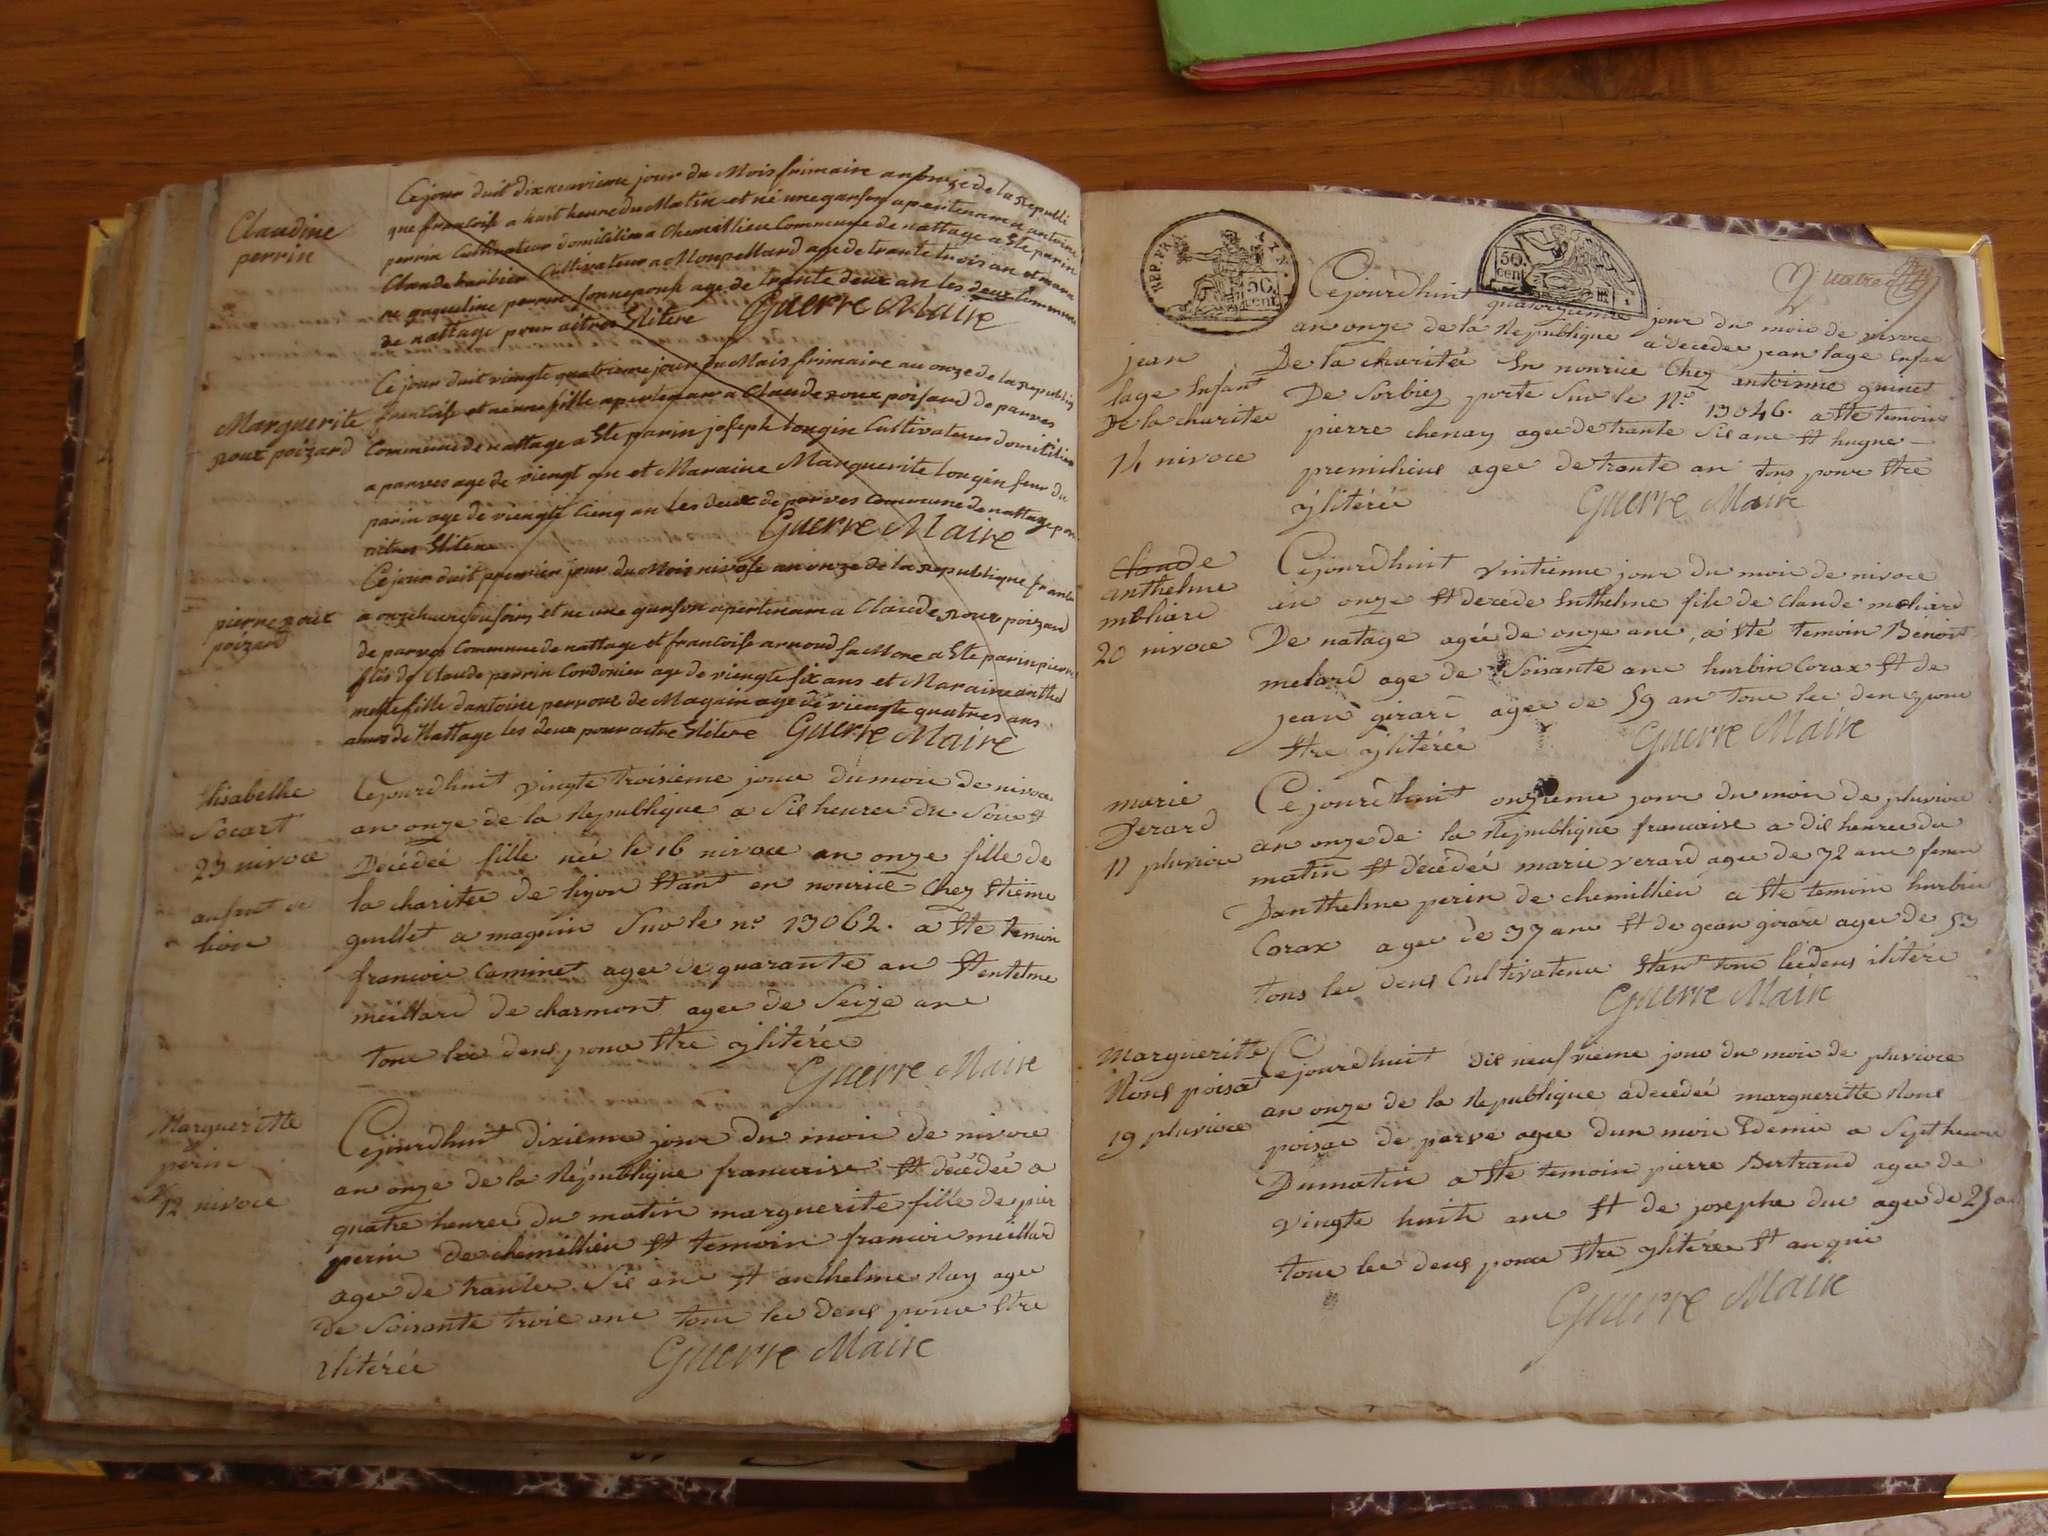 Claudine
perrin
Cejour duit dixneuvieme jour du Mois frimaire an onze de la Republi
que francoise a huit heure du Matin et né une garson apertenam a antoine
perrin Cultivateur domicilié a Chemillieu Commune de nattage a Ete parin
Claude barbier Cultivateur a Monpellard age de trante trois an et mara
ne jaqueline perrin age de trante deux an les deux Commune
de nattage pour aitres Ilitere Guerre Maire
Marguerite
roux poizard
Ce jour duit viengte quatrieme jour du Mois frimaire an onze de la Republiq
francoise et ne une fille apertenam a Claude roux poisard de parves
Commune de nattage a Ete parin joseph Longin Cultivateur domicilier
a parves age de viengt et Maraine Marguerite Longin seur du
parin age de viengte cienq an Les deux de parves Commune de nattage pour
aitres Ilitere Guerre Maire
pierre roux
poizard
Ce jour duit premier jour du Mois nivose an onze de la Republique franc
a onze heure du soir et ne une garson apertenam a Claude roux poizard
de parves Commune de nattage et francoise arnoud sa More a Ete parin pierre
fils de Claude perrin Cordonier age de viengte six ans et Maraine anthel
mette fille dantoine perroux de Magnin age de viengte quatres ans
de Nattage les deux pour aitre Ilitere Guerre Maire
Elisabethe
Socart
23 nivoce
lion
Cejourdhuit vingte troisieme jour du moie de nivoce
an onze de la Republique a Sis heuree du Soir et
Décédeé fille née le 16 nivoce an onze fille de
la charitee de liyon Etant en nourice Chez Etieme
guillet a magnin Suo le n.o 13062. a Ete temoin
francoie Caminet agee de quarante an Et entelme
meillard de charmont agee de Seize ane
toue lee deus poue Etre yliterée
Guerre Maire
Marguerite
perin
12 nivoce
Cejourdhuit dixieme joue du moie de nivoce
an onze de la République francaise Et décédée a
quatre heuree du matin marguerite fille de pier
perin de chemillieu Et temoin francoie meillard
agee de trante Sis ane Et anthelme Ray agee
de Soisante troie ane toue lee deus poue Etre
iliterée Guerre Maire
REP. FRA.
50
cent.
50
cent
quatre
jean
lage Enfant
De la charitee
14 nivoce
Cejourdhuit quatorzieme jour du moie de nivoce
an onze de la Republique a décédee jean lage Enfan
De la charitée En nourice Chez antoinne guinet
De Sorbiez porte Suo le N.o 13046. a Ete temoins
pierre chenay agee de trante Sis ane Et hugue
premilieus agee de trante an tous pour Etre
yliterée Guerre Maire
Claude
anthelme
méliard
20 nivoce
Cejourdhuit vintienne jour du moie de nivoce
an onze Et decede Enthelme fils de Claude meliard
De natage agée de onze ane, a Eté temoin Bénoit
melard age de Soisante ane hurbin Corax Et de
jean girard agee de 59 an toue lee deus poue
Etre yliterée Guerre Maire
marie
verard
11 pluvioe
Cejourdhuit onzieme joue du moie de pluvioe
an onze de la République francaise a dis heuree du
matin Et décédée marie verard agee de 72 ane femm
Danthelme perin de chemillieu a Ete temoin hurbin
Corax agee de 37 ane Et de jean girard agee de 59
tous lee deus Cultivateue Etant toue lee deus ilitere
Guerre Maire
Marguerite
Rous poisat
19 pluvioce
Cejourdhuit dis neufvieme joue du moie de pluvioce
an onze de la Republique a decedeé marguerite Rous
poisae de parve agee dun moie Edemie a Sept heure
Dumatin a Ete temoin pierre Bertrand agee de
vingte huite ane Et de josephe due agee de 25 an
toue lee deus poue Etre yliterée Et an qui
Guerre Maire